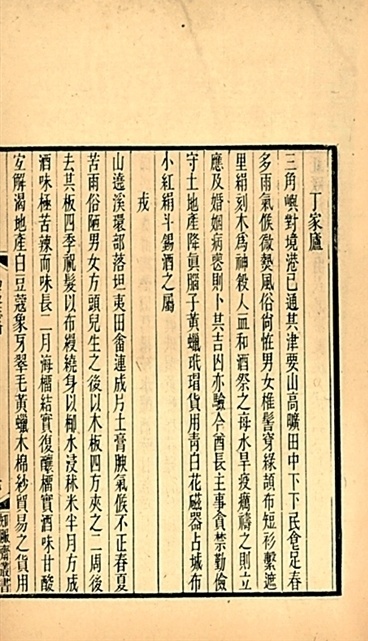 丁家廬
三角嶼對境港已通其津要山高曠田中下下民食足春
多雨氣候微熱風俗尚恠男女椎髻穿綠頡布短衫繫遮
里絹刻木為神殺人血和酒祭之每水旱疫癘禱之則立
應及婚姻病喪則卜其吉凶亦驗今酋長主事貪禁勤儉
守土地產降真腦子黃蠟玳瑁貨用青白花磁器占城布
小紅絹斗錫酒之屬
戎
山遶溪環部落坦夷田畬連成片土膏腴氣候不正春夏
苦雨俗陋男女方頭兒生之後以木板四方夾之二周後
去其板四季祝髮以布縵繞身以椰水浸秫米半月方成
酒味極苦辣而味長二月海榴結實復釀榴實酒味甘酸
宜解渴地產白荳蔻象牙翠毛黃蠟木棉紗貿易之貨用
知服齋叢書